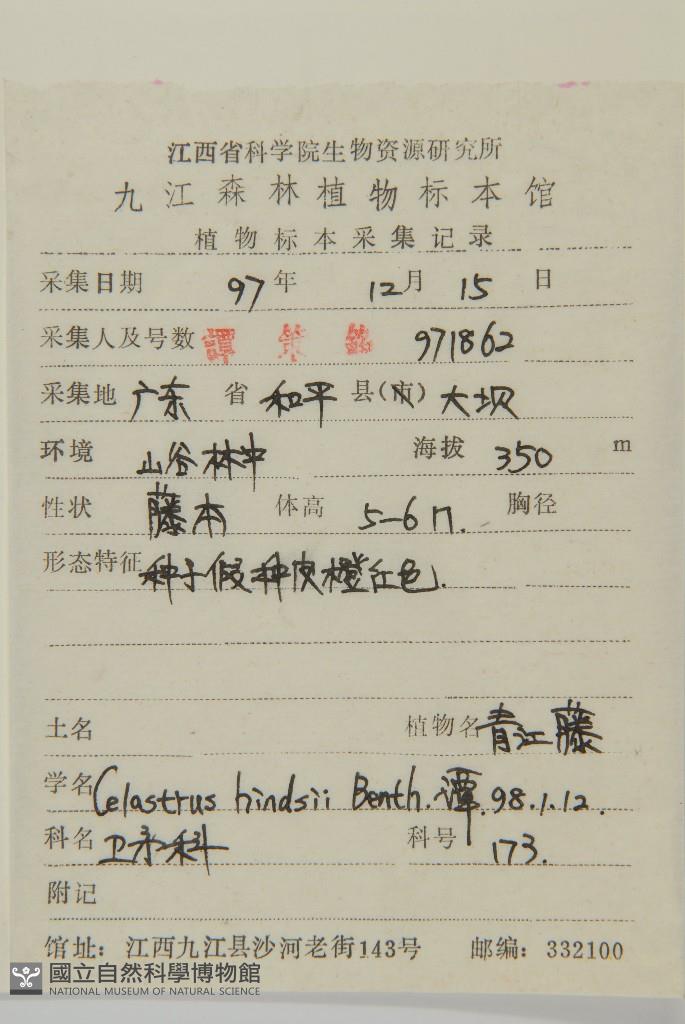 江西省科学院生物资源研究所
九江森林植物标本馆
植物标本采集记录
采集日期 97年 12月 15日
采集人及号数 譚策銘 971862
采集地 广东 省 和平 县(市) 大坝
环境 山谷林中 海拔 350 m
性状 藤本 体高 5-6m. 胸径
形态特征 种子假种皮橙红色.
土名 植物名 青江藤
学名 Celastrus hindsii Benth. 谭. 98.1.12.
科名 卫矛科 科号 173.
附记
馆址：江西九江县沙河老街143号 邮编：332100
國立自然科學博物館
NATIONAL MUSEUM OF NATURAL SCIENCE